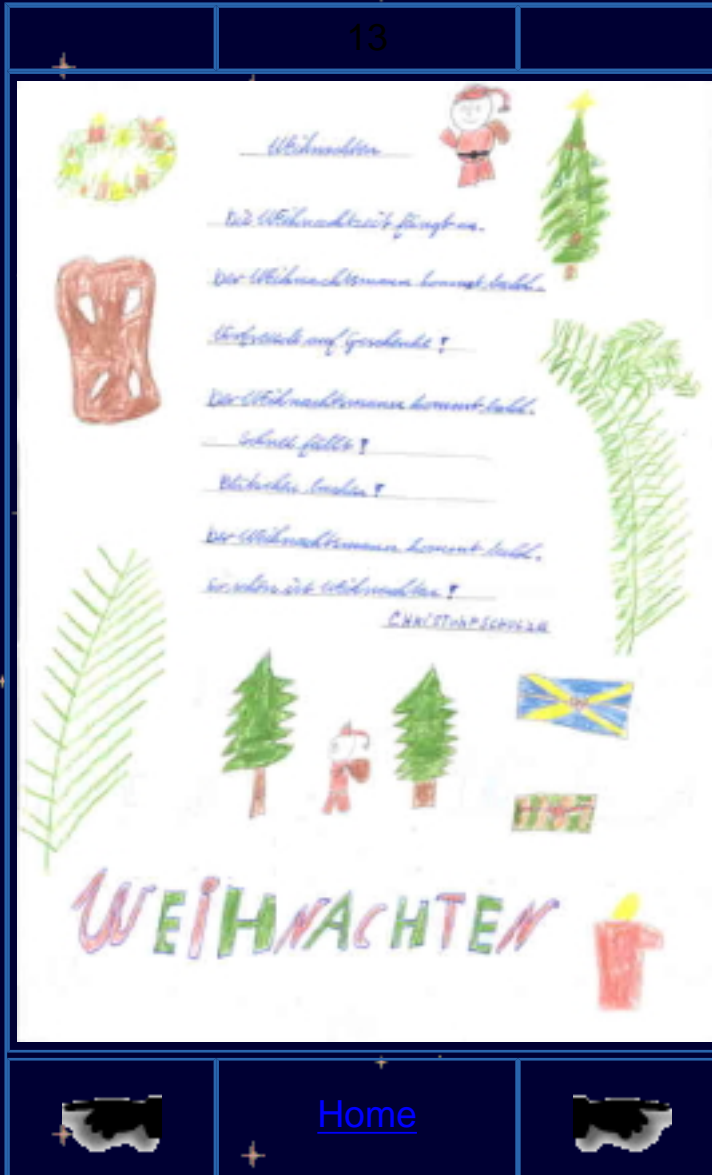 13
Weihnachten
Die Weihnachtszeit fängt an.
Der Weihnachtsmann kommt bald.
Vorfreude auf Geschenke!
Der Weihnachtsmann kommt bald.
Schnee fällt!
Plätzchen backen!
Der Weihnachtsmann kommt bald.
So schön ist Weihnachten!
CHRISTOPH SCHULZE
WEIHNACHTEN
Home